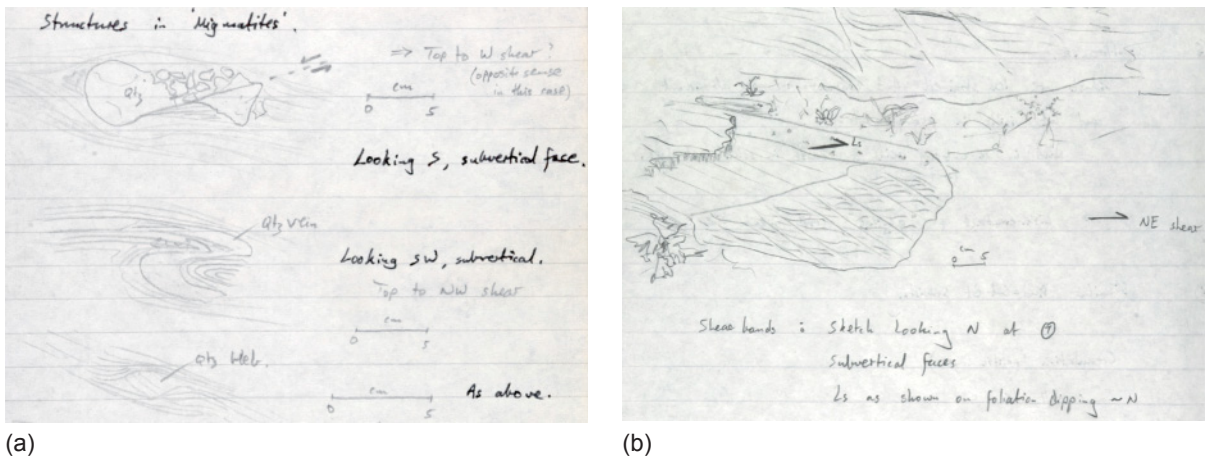 Structures in 'Migmatites'.
Qtz
⇒ Top to W shear?
(opposite sense
in this case)
cm
0 5
Looking S, subvertical face.
Qtz vein
Looking SW, subvertical.
Top to NW shear
cm
0 5
Qtz bleb.
cm
0 5
As above.
(a)
Ls
NE shear
cm
0 5
Shear bands : Sketch looking N at
Subvertical faces
Ls as shown on foliation dipping ~N
(b)